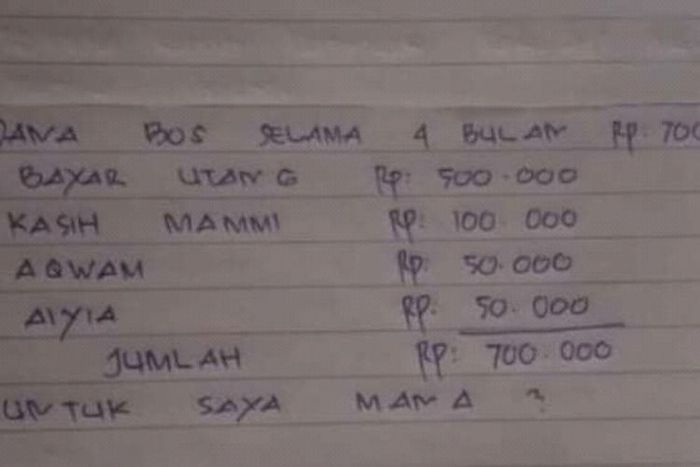 DANA BOS SELAMA 4 BULAN RP: 700
BAYAR UTANG RP: 500.000
KASIH MAMMI RP: 100 000
AQWAM RP: 50.000
AIYIA RP: 50.000
JUMLAH RP: 700.000
UNTUK SAYA MANA ?